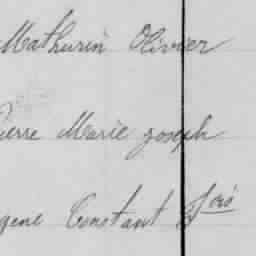 Mathurin Olivier
Pierre Marie joseph
gene Constant